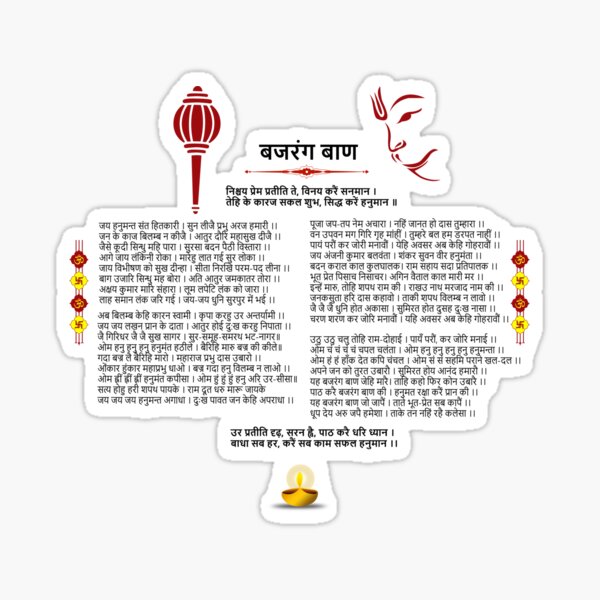 बजरंग बाण
निश्चय प्रेम प्रतीति ते, विनय करैं सनमान ।
तेहि के कारज सकल शुभ, सिद्ध करैं हनुमान ॥
जय हनुमन्त संत हितकारी । सुन लीजै प्रभु अरज हमारी ।।
जन के काज बिलम्ब न कीजै । आतुर दौरि महासुख दीजै ।।
जैसे कूदी सिन्धु महि पारा । सुरसा बदन पैठी विस्तारा ।।
आगे जाय लंकिनी रोका । मारेहु लात गई सुर लोका ।।
जाय विभीषण को सुख दीन्हा । सीता निरखि परम-पद लीना ।।
बाग उजारि सिन्धु मह बोरा । अति आतुर जमकातर तोरा ।।
अक्षय कुमार मारि संहारा । लूम लपेटि लंक को जारा ।।
लाह समान लंक जरि गई । जय-जय धुनि सुरपुर में भई ।।
अब बिलम्ब केहि कारन स्वामी । कृपा करहु उर अन्तर्यामी ।।
जय जय लखन प्रान के दाता । आतुर होई दु:ख करहु निपाता ।।
जै गिरिधर जै जै सुख सागर । सुर-समूह-समरथ भट-नागर॥
ओम हनु हनु हनु हनुमंत हठीले । बैरिहि मारु बज्र की कीले॥
गदा बज्र लै बैरिहि मारो । महाराज प्रभु दास उबारो ।।
ओंकार हुंकार महाप्रभु धाओ । बज्र गदा हनु विलम्ब न लाओ ।।
ओम ह्नीं ह्नीं ह्नीं हनुमंत कपीसा । ओम हुं हुं हुं हनु अरि उर-सीसा॥
सत्य होहु हरी शपथ पायके । राम दूत धरु मारू जायके
जय जय जय हनुमन्त अगाधा । दुःख पावत जन केहि अपराधा ।।
पूजा जप-तप नेम अचारा । नहिं जानत हो दास तुम्हारा ।।
वन उपवन मग गिरि गृह मांहीं । तुम्हरे बल हम डरपत नाहीं ।।
पायं परौं कर जोरी मनावौं । येहि अवसर अब केहि गोहरावौं ।।
जय अंजनी कुमार बलवंता । शंकर सुवन वीर हनुमंता ।।
बदन कराल काल कुलघालक। राम सहाय सदा प्रतिपालक ।।
भूत प्रेत पिसाच निसाचर। अगिन वैताल काल मारी मर ।।
इन्हें मारु, तोहि शपथ राम की । राखउ नाथ मरजाद नाम की ।।
जनकसुता हरि दास कहावो । ताकी शपथ विलम्ब न लावो ।।
जै जै जै धुनि होत अकासा । सुमिरत होत दुसह दुःख नासा ।।
चरण शरण कर जोरि मनावौं । यहि अवसर अब केहि गोहरावौं ।।
उठु उठु चलु तोहि राम-दोहाई । पायँ परौं, कर जोरि मनाई ।।
ओम चं चं चं चं चपल चलंता । ओम हनु हनु हनु हनु हनुमन्ता ।।
ओम हं हं हाँक देत कपि चंचल । ओम सं सं सहमि पराने खल-दल ।।
अपने जन को तुरत उबारौ । सुमिरत होय आनंद हमारौ ।।
यह बजरंग बाण जेहि मारै। ताहि कहो फिर कोन उबारै ।।
पाठ करै बजरंग बाण की । हनुमत रक्षा करैं प्रान की ।।
यह बजरंग बाण जो जापैं । ताते भूत-प्रेत सब कापैं ।।
धूप देय अरु जपै हमेशा । ताके तन नहिं रहै कलेसा ।।
उर प्रतीति दृढ़, सरन ह्वै, पाठ करै धरि ध्यान ।
बाधा सब हर, करैं सब काम सफल हनुमान ।।